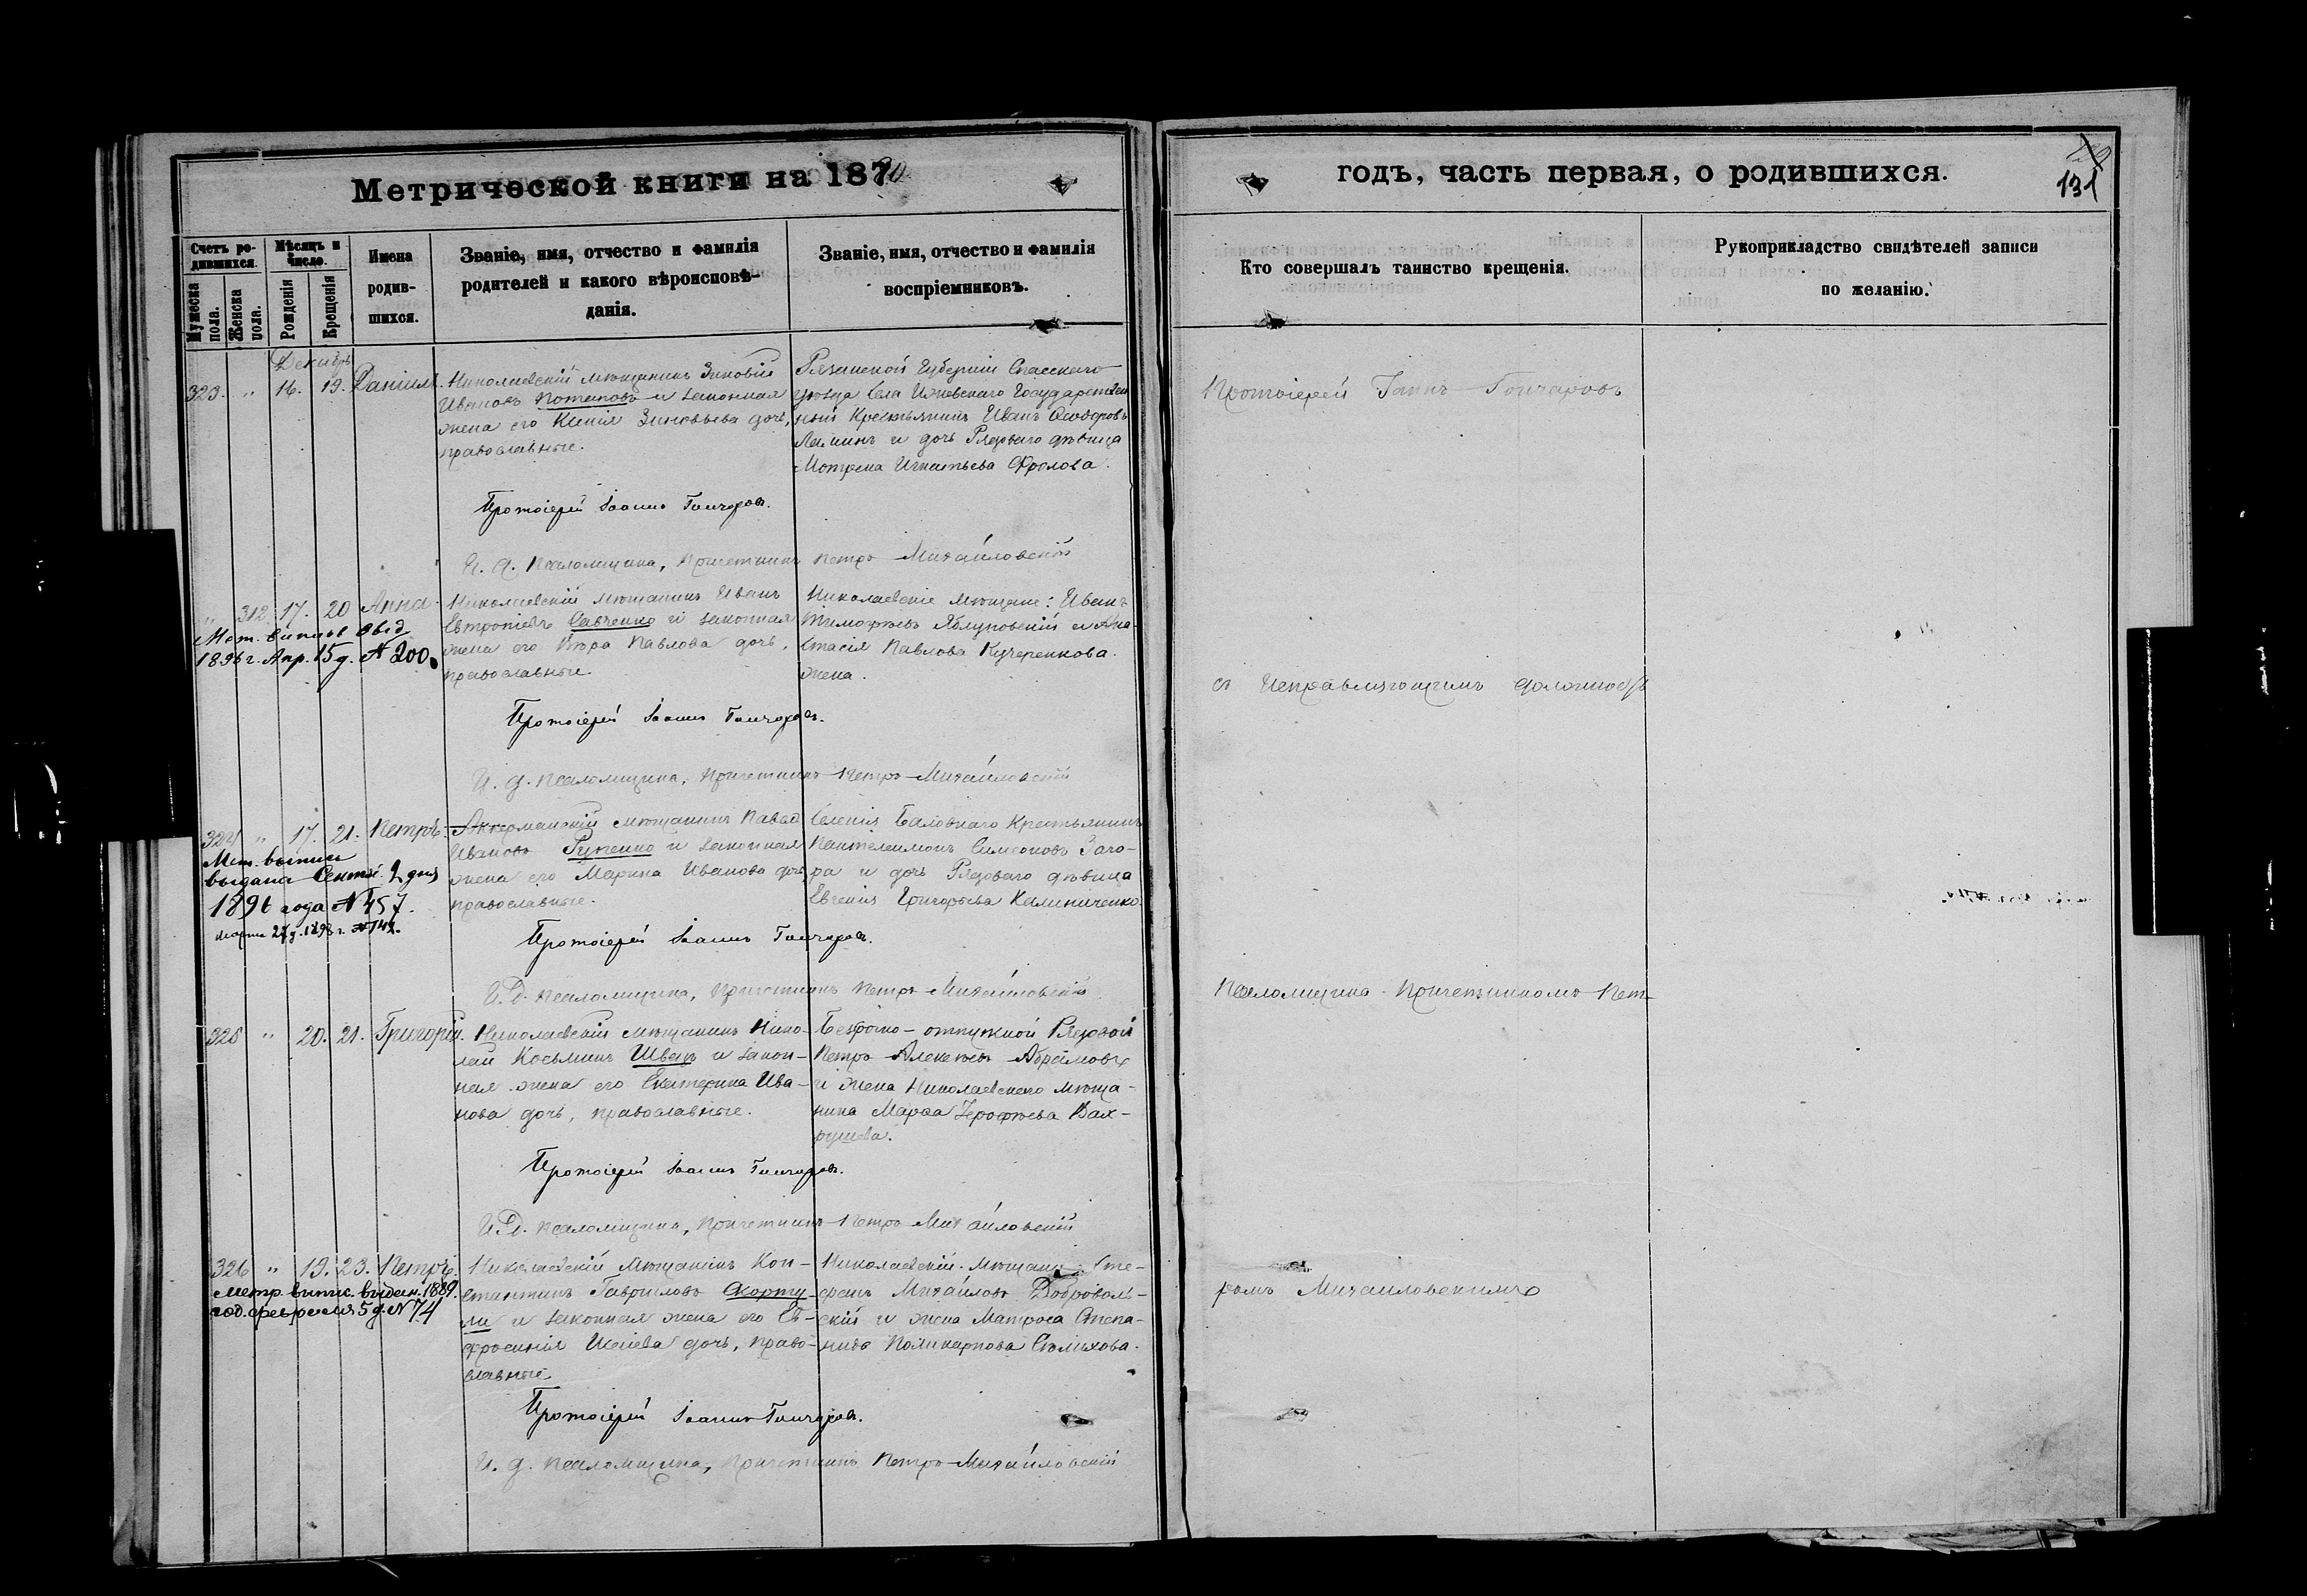 Метрической книги на 1870
годъ, часть первая, о родившихся.
131
Счетъ ро-
дившихся.
Мужеска
пола.
Женска
пола.
Мѣсяцъ и
число.
Рожденія
Крещенія
Имена
родив-
шихся.
Званіе, имя, отчество и фамилія
родителей и какого вѣроисповѣ-
данія.
Званіе, имя, отчество и фамилія
воспріемниковъ.
Кто совершалъ таинство крещенія.
Рукоприкладство свидѣтелей записи
по желанію.
Декабрь
323. " 16. 19. Даніилъ.
Николаевскій мѣщанинъ Зиновій
Ивановъ Потаповъ и законная
жена его Ксенія Зиновьева дочь,
православные.
Рязанской Губерніи Спасскаго
уѣзда села Ижевскаго Государствен
ный Крестьянинъ Иванъ Ѳеодоровъ
и дочь Рядоваго дѣвица
Мотрона Игнатьева Фролова.
Протоіерей Іоаннъ Гончаровъ.
И. д. псаломщика, Причетникъ Петръ Михайловскій
" 312. 17. 20 Анна.
Мет. выпись выд
1896 г. Апр. 15 д. № 200.
Николаевскій мѣщанинъ Иванъ
Евтропіевъ Савченко и законная
жена его Вѣра Павлова дочь,
православные.
Николаевскіе мѣщане: Иванъ
Тимофѣевъ Яблуновскій и Ана-
стасія Павлова Кучеренкова
жена.
Протоіерей Іоаннъ Гончаровъ.
И. д. псаломщика, Причетникъ Петръ Михайловскій
324 " 17. 21. Петръ.
Мет. выпись
выдана Сентяб. 2 дня
1896 года № 457.
Марта 27 д. 1898 г. № 142.
Аккерманскій мѣщанинъ Павелъ
Ивановъ Руценко и законная
жена его Марина Иванова дочь,
православные.
Селенія Баловнаго Крестьянинъ
Пантелеимонъ Симеоновъ Заго-
ра и дочь Рядоваго дѣвица
Евгенія Григорьева Калиниченко.
Протоіерей Іоаннъ Гончаровъ.
И. Д. псаломщика, Причетникъ Петръ Михайловскій
325 " 20. 21. Григорій.
Николаевскій мѣщанинъ Нико-
лай Косьминъ Швецъ и закон-
ная жена его Екатерина Ива-
нова дочь, православные.
Безсрочно-отпускной Рядовой
Петръ Алексѣевъ Абрамовъ
и жена Николаевскаго мѣща-
нина Марѳа Ерофѣева Вах-
рушева.
Протоіерей Іоаннъ Гончаровъ.
И. Д. псаломщика, Причетникъ Петръ Михайловскій
326 " 19. 23. Петръ.
Метр. выпис. выдан. 1889.
год. февраля 5 д. № 74
Николаевскій Мѣщанинъ Кон-
стантинъ Гавриловъ Скорту-
ли и законная жена его Ев-
фросинія Исаіева дочь, право-
славные.
Николаевскій мѣщанин Сте-
фанъ Михайловъ Доброволь-
скій и жена Матроса Степа-
нида Поликарпова Сѣлихова.
Протоіерей Іоаннъ Гончаровъ.
И. д. псаломщика, Причетникъ Петръ Михайловскій
Протоіерей Іоаннъ Гончаровъ
съ Исправляющимъ должность
Псаломщика Причетникомъ Пет-
ромъ Михайловскимъ